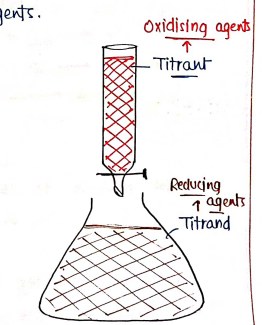 gents.
Oxidising agents
Titrant
Reducing
agents
Titrand